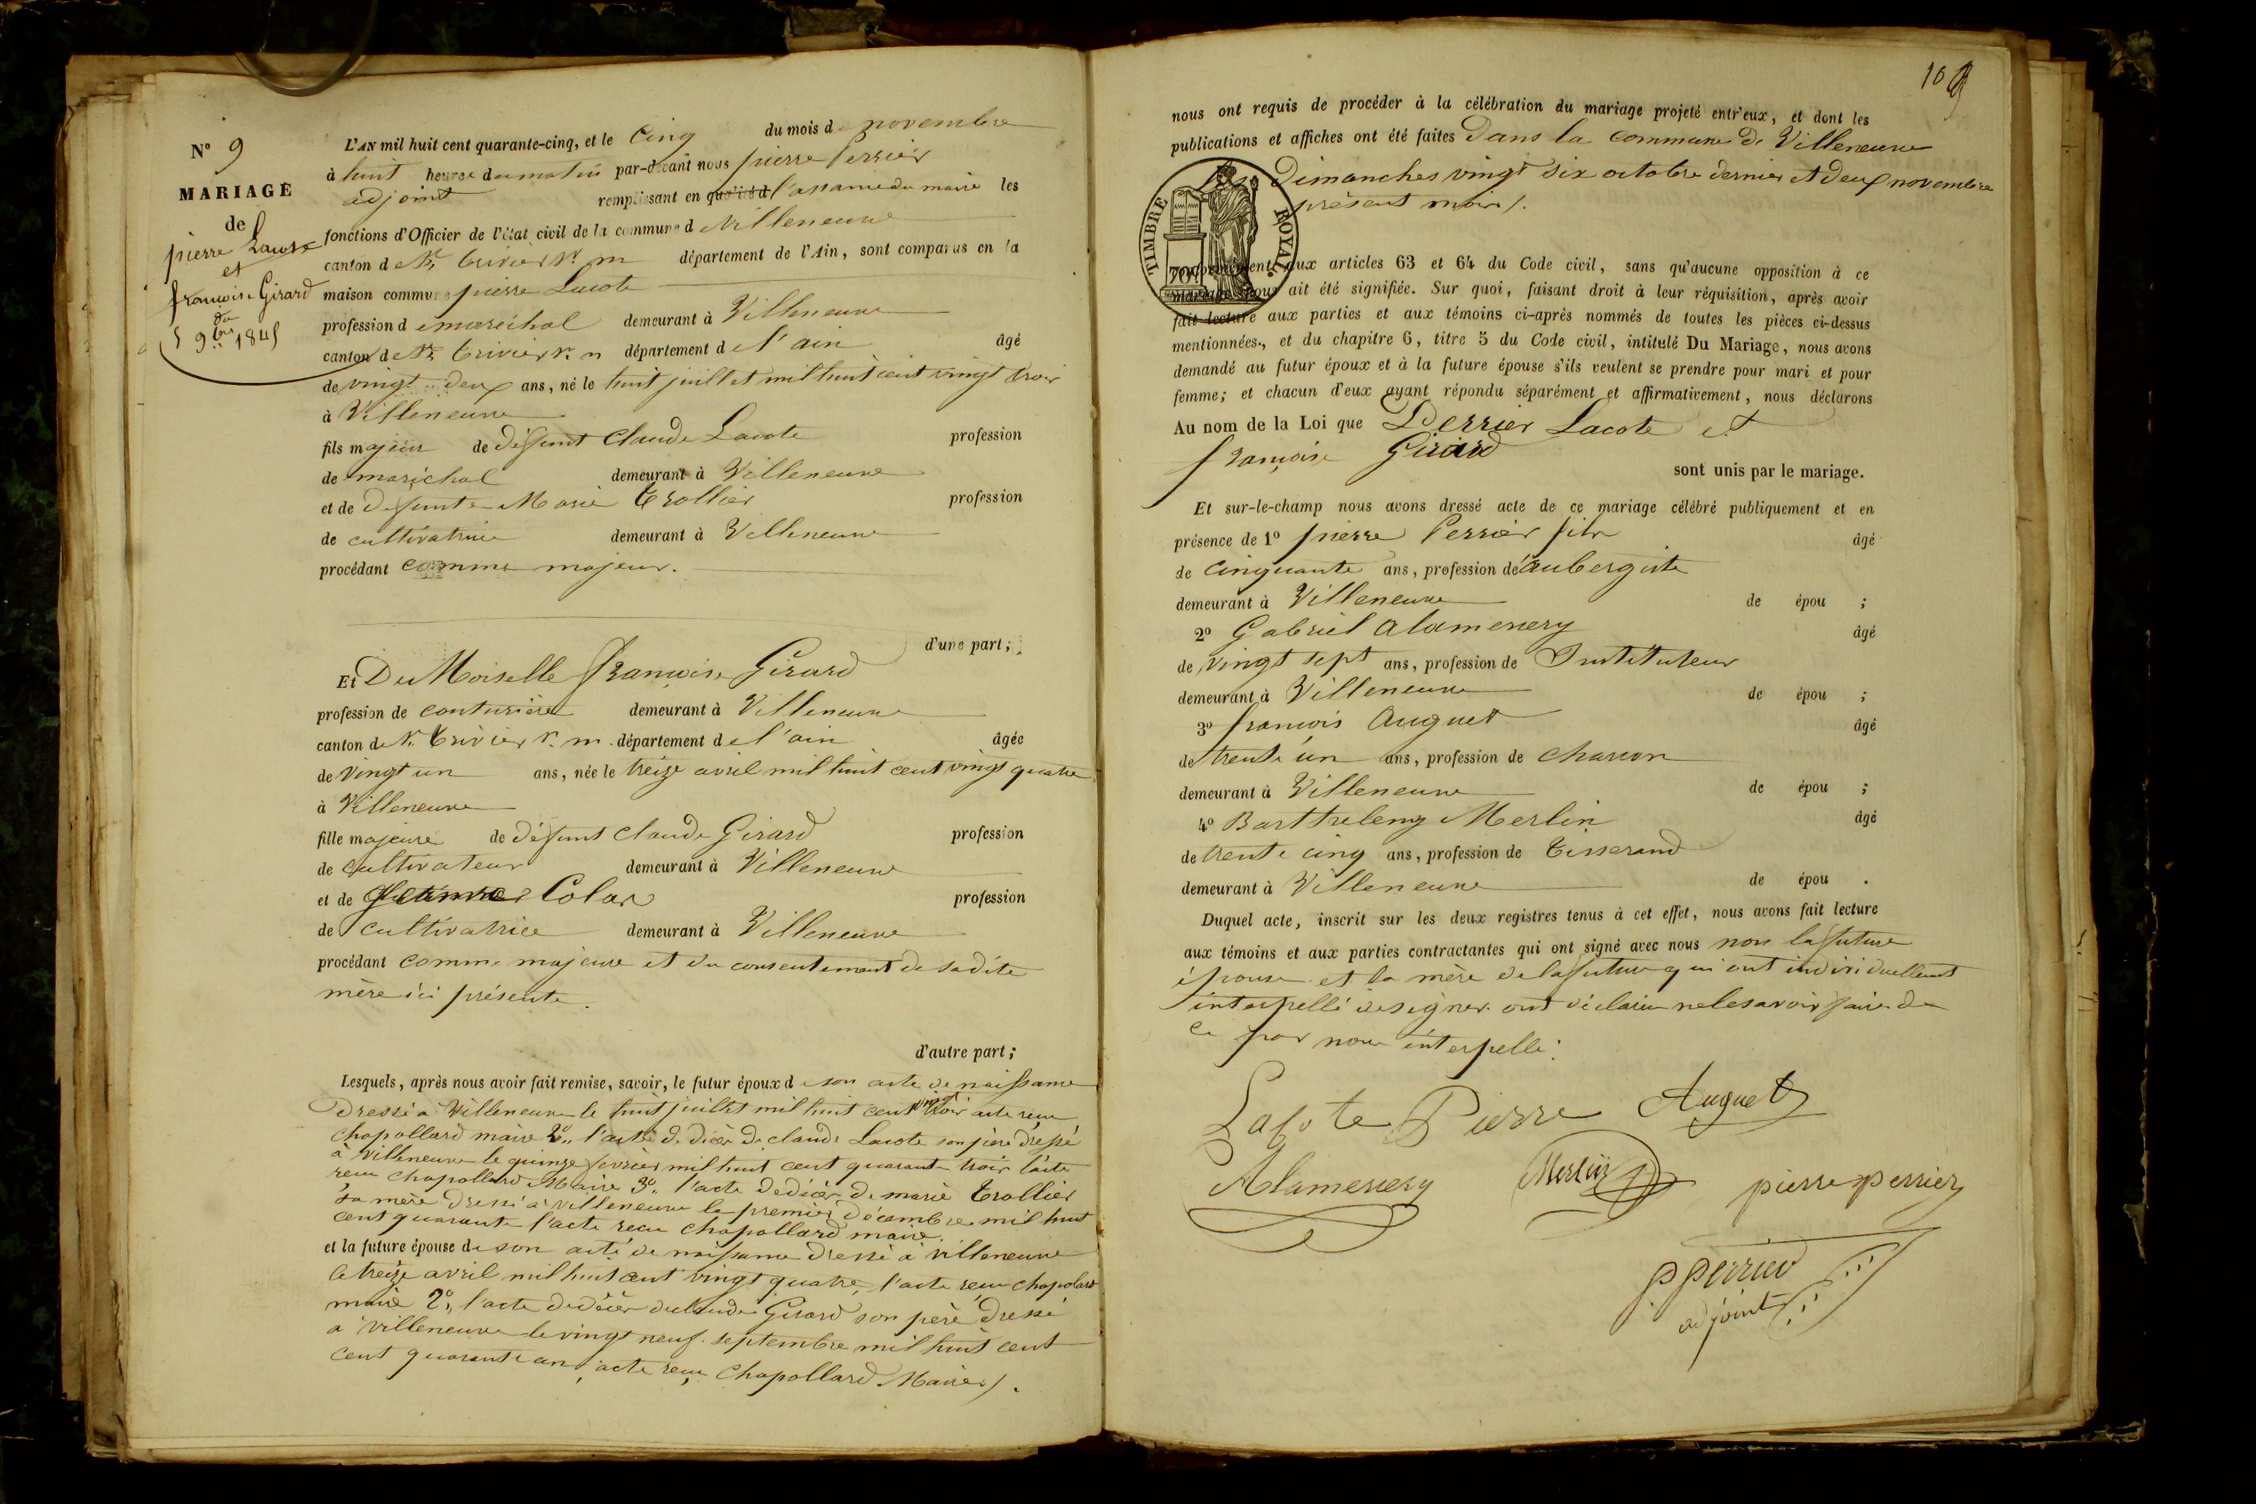 N° 9
MARIAGE
de
pierre Lacote
et
françoise Girard
du
5 9bre 1845
L'AN mil huit cent quarante-cinq, et le Cinq du mois de novembre
à huit heures du matin par-devant nous pierre Perrier
adjoint remplissant en qualité d l'absence du maire les
fonctions d'Officier de l'état civil de la commune d Villeneuve
canton de St. Trivier s. m département de l'Ain, sont comparus en la
maison commune pierre Lacote
profession de maréchal demeurant à Villeneuve
canton de St. Trivier s. m département de l'ain âgé
de vingt deux ans, né le huit juillet mil huit cent vingt trois
à Villeneuve
fils majeur de défunt Claude Lacote profession
de maréchal demeurant à Villeneuve
et de defunte Marie Trollier profession
de cultivatrice demeurant à Villeneuve
procédant comme majeur.
d'une part;
Et DeMoiselle françoise Girard
profession de couturière demeurant à Villeneuve
canton de St. Trivier s. m. département de l'ain âgée
de vingt un ans, née le treize avril mil huit cent vingt quatre
à Villeneuve
fille majeure de défunt Claude Girard profession
de cultivateur demeurant à Villeneuve
et de Jeanne Colas profession
de cultivatrice demeurant à Villeneuve
procédant comme majeure et du consentement de sadite
mère ici présente.
d'autre part;
Lesquels, après nous avoir fait remise, savoir, le futur époux de son acte de naissance
dressé à Villeneuve le huit juillet mil huit cent vingt trois acte reçu
chapollard maire 2° l'acte de décès de claude Lacote son père dressé
à Villeneuve le quinze fevrier mil huit cent quarante trois l'acte
reçu chapollard Maire 3° l'acte de décès de marie Trollier
sa mère dressé à Villeneuve le premier décembre mil huit
cent quarante l'acte reçu chapollard maire.
et la future épouse de son acte de naissance dressé à villeneuve
le treize avril mil huit cent vingt quatre, l'acte reçu chapolard
maire 2°, l'acte de décès de claude Girard son père dressé
à Villeneuve le vingt neuf septembre mil huit cent
cent quarante un, acte reçu Chapollard Maire /.
nous ont requis de procéder à la célébration du mariage projeté entr'eux, et dont les
publications et affiches ont été faites dans la commune de Villeneuve
les Dimanches vingt six octobre dernier et deux novembre
présent mois /.
TIMBRE ROYAL
conformément aux articles 63 et 64 du Code civil, sans qu'aucune opposition à ce
mariage nous ait été signifiée. Sur quoi, faisant droit à leur réquisition, après avoir
fait lecture aux parties et aux témoins ci-après nommés de toutes les pièces ci-dessus
mentionnées, et du chapitre 6, titre 5 du Code civil, intitulé Du Mariage, nous avons
demandé au futur époux et à la future épouse s'ils veulent se prendre pour mari et pour
femme; et chacun d'eux ayant répondu séparément et affirmativement, nous déclarons
Au nom de la Loi que Perrier Lacote et
françoise Girard
sont unis par le mariage.
Et sur-le-champ nous avons dressé acte de ce mariage célébré publiquement et en
présence de 1° pierre Perrier fils âgé
de cinquante ans, profession de aubergiste
demeurant à Villeneuve de épou ;
2° Gabriel Alamenery âgé
de vingt sept ans, profession de Instituteur
demeurant à Villeneuve de épou ;
3° françois Auguet âgé
de trente un ans, profession de charron
demeurant à Villeneuve de épou ;
4° Barthelemy Merlin âgé
de trente cinq ans, profession de Tisserand
demeurant à Villeneuve de épou .
Duquel acte, inscrit sur les deux registres tenus à cet effet, nous avons fait lecture
aux témoins et aux parties contractantes qui ont signé avec nous non la future
épouse et la mère de la future qui ont individuellement
interpellé de signer ont déclaré ne le savoir faire de
ce par nous interpellé.
Lacote Pierre Auguet
Alamenery Merlin pierre perrier
P perrier
adjoint